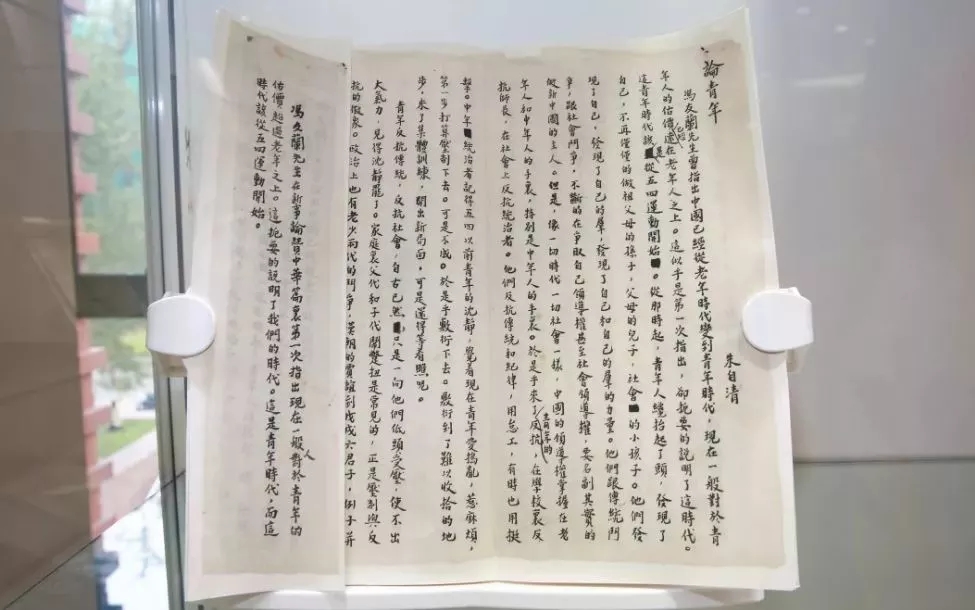 論青年
朱自清
馮友蘭先生曾指出中國已經從老年時代變到青年時代,現在一般對於青
年人的估價在老年人之上。這似乎是第一次指出,卻扼要的說明了這時代。
這青年時代該是從五四運動開始。從那時起,青年人纔抬起了頭,發現了
自己,不再僅僅的做祖父母的孫子,父母的兒子,社會的小孩子。他們發
現了自己,發現了自己的羣,發現了自己和自己的羣的力量。他們跟傳統鬥
爭,跟社會鬥爭,不斷的在爭取自己領導權甚至社會領導權,要名副其實的
做新中國的主人。但是,像一切時代一切社會一樣,中國的領導權掌握在老
年人和中年人的手裏,特別是中年人的手裏。於是乎來了青年的反抗,在學校裏反
抗師長,在社會上反抗統治者。他們反抗傳統和紀律,用怠工,有時也用挺
擊。中年統治者記得五四以前青年的沈靜,覺着現在青年愛搗亂,惹麻煩,
第一步打算壓制下去。可是不成。於是乎敷衍下去。敷衍到了難以收拾的地
步,來了集體訓練,開出新局面,可是還得等着瞧呢。
青年反抗傳統,反抗社會,自古已然,只是一向他們低頭受壓,使不出
大氣力,見得沈靜罷了。家庭裏父代和子代鬧蹩扭是常見的,正是壓制與反
抗的徵象。政治上也有老少兩代的鬥爭,漢朝的賈誼到戊戌六君子,例子並
馮友蘭先生在新事論贊中華篇裏第一次指出現在一般人對於青年的
估價超過老年之上。這扼要的說明了我們的時代。這是青年時代,而這
時代該從五四運動開始。